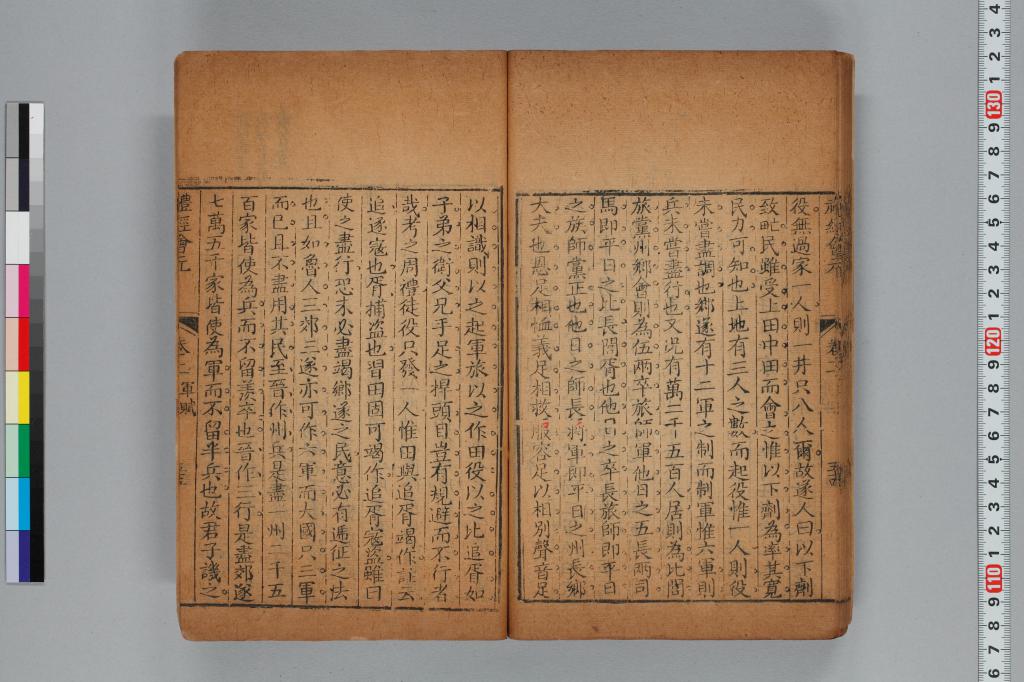 役無過家一人則一井只八人爾故遂人曰以下劑
致甿民雖受上田中田而會之惟以下劑為率其寬
民力可知也上地有三人之數而起役惟一人則役
未嘗盡調也鄉遂有十二軍之制而制軍惟六軍則
兵未嘗盡行也又况有萬二千五百人居則為比閭
族黨州鄉會則為伍兩卒旅師軍他日之五長兩司
馬即平日之比長閭胥也他日之卒長旅師即平日
之族師黨正也他日之師長將軍即平日之州長鄉
大夫也恩足相恤義足相救服容足以相別聲音足
以相識則以之起軍旅以之作田役以之比追胥如
子弟之衛父兄手足之捍頭目豈有規避而不行者
哉考之周禮徒役只發一人惟田與追胥竭作註云
追逐寇也胥捕盜也習田固可竭作追胥寇盜雖曰
使之盡行恐未必盡竭鄉遂之民意必有遞征之法
也且如魯人三郊三遂亦可作六軍而大國只三軍
而已且不盡用其民至晉作州兵是盡一州二千五
百家皆使為兵而不留羨卒也晉作三行是盡郊遂
七萬五千家皆使為軍而不留半兵也故君子譏之
禮經會元 卷二 軍賦